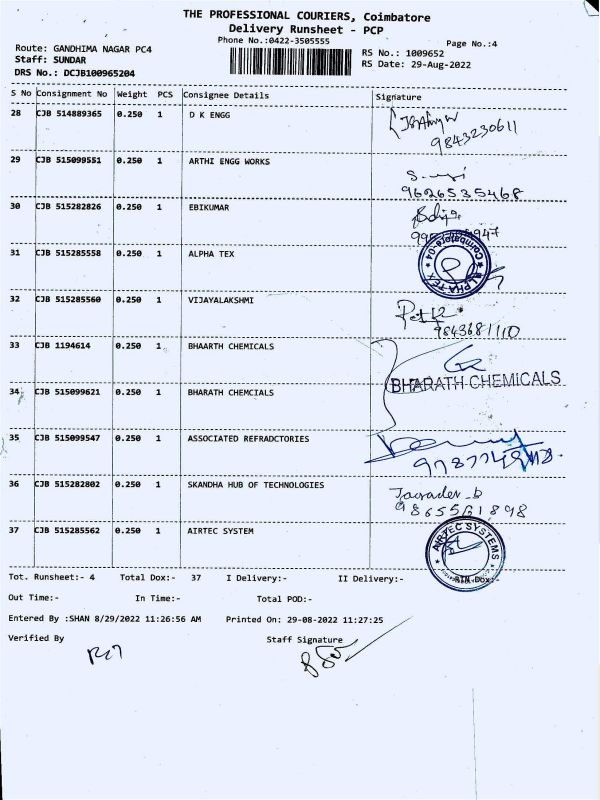 THE PROFESSIONAL COURIERS, Coimbatore
Delivery Runsheet - PCP
Phone No.:0422-3505555
Page No.:4
Route: GANDHIMA NAGAR PC4
RS No.: 1009652
Staff: SUNDAR
RS Date: 29-Aug-2022
DRS No.: DCJB100965204
S No Consignment No Weight PCS Consignee Details Signature
28 CJB 514889365 0.250 1 D K ENGG
9843230611
29 CJB 515099551 0.250 1 ARTHI ENGG WORKS
9626535468
30 CJB 515282826 0.250 1 EBIKUMAR
31 CJB 515285558 0.250 1 ALPHA TEX
Coimbatore-04 * ALPHA TEX *
32 CJB 515285560 0.250 1 VIJAYALAKSHMI
9843681110
33 CJB 1194614 0.250 1 BHAARTH CHEMICALS
BHARATH CHEMICALS
34 CJB 515099621 0.250 1 BHARATH CHEMCIALS
35 CJB 515099547 0.250 1 ASSOCIATED REFRADCTORIES
36 CJB 515282802 0.250 1 SKANDHA HUB OF TECHNOLOGIES
37 CJB 515285562 0.250 1 AIRTEC SYSTEM
AIRTEC SYSTEMS
Tot. Runsheet:- 4 Total Dox:- 37 I Delivery:- II Delivery:- RTN Dox:-
Out Time:- In Time:- Total POD:-
Entered By :SHAN 8/29/2022 11:26:56 AM Printed On: 29-08-2022 11:27:25
Verified By Staff Signature